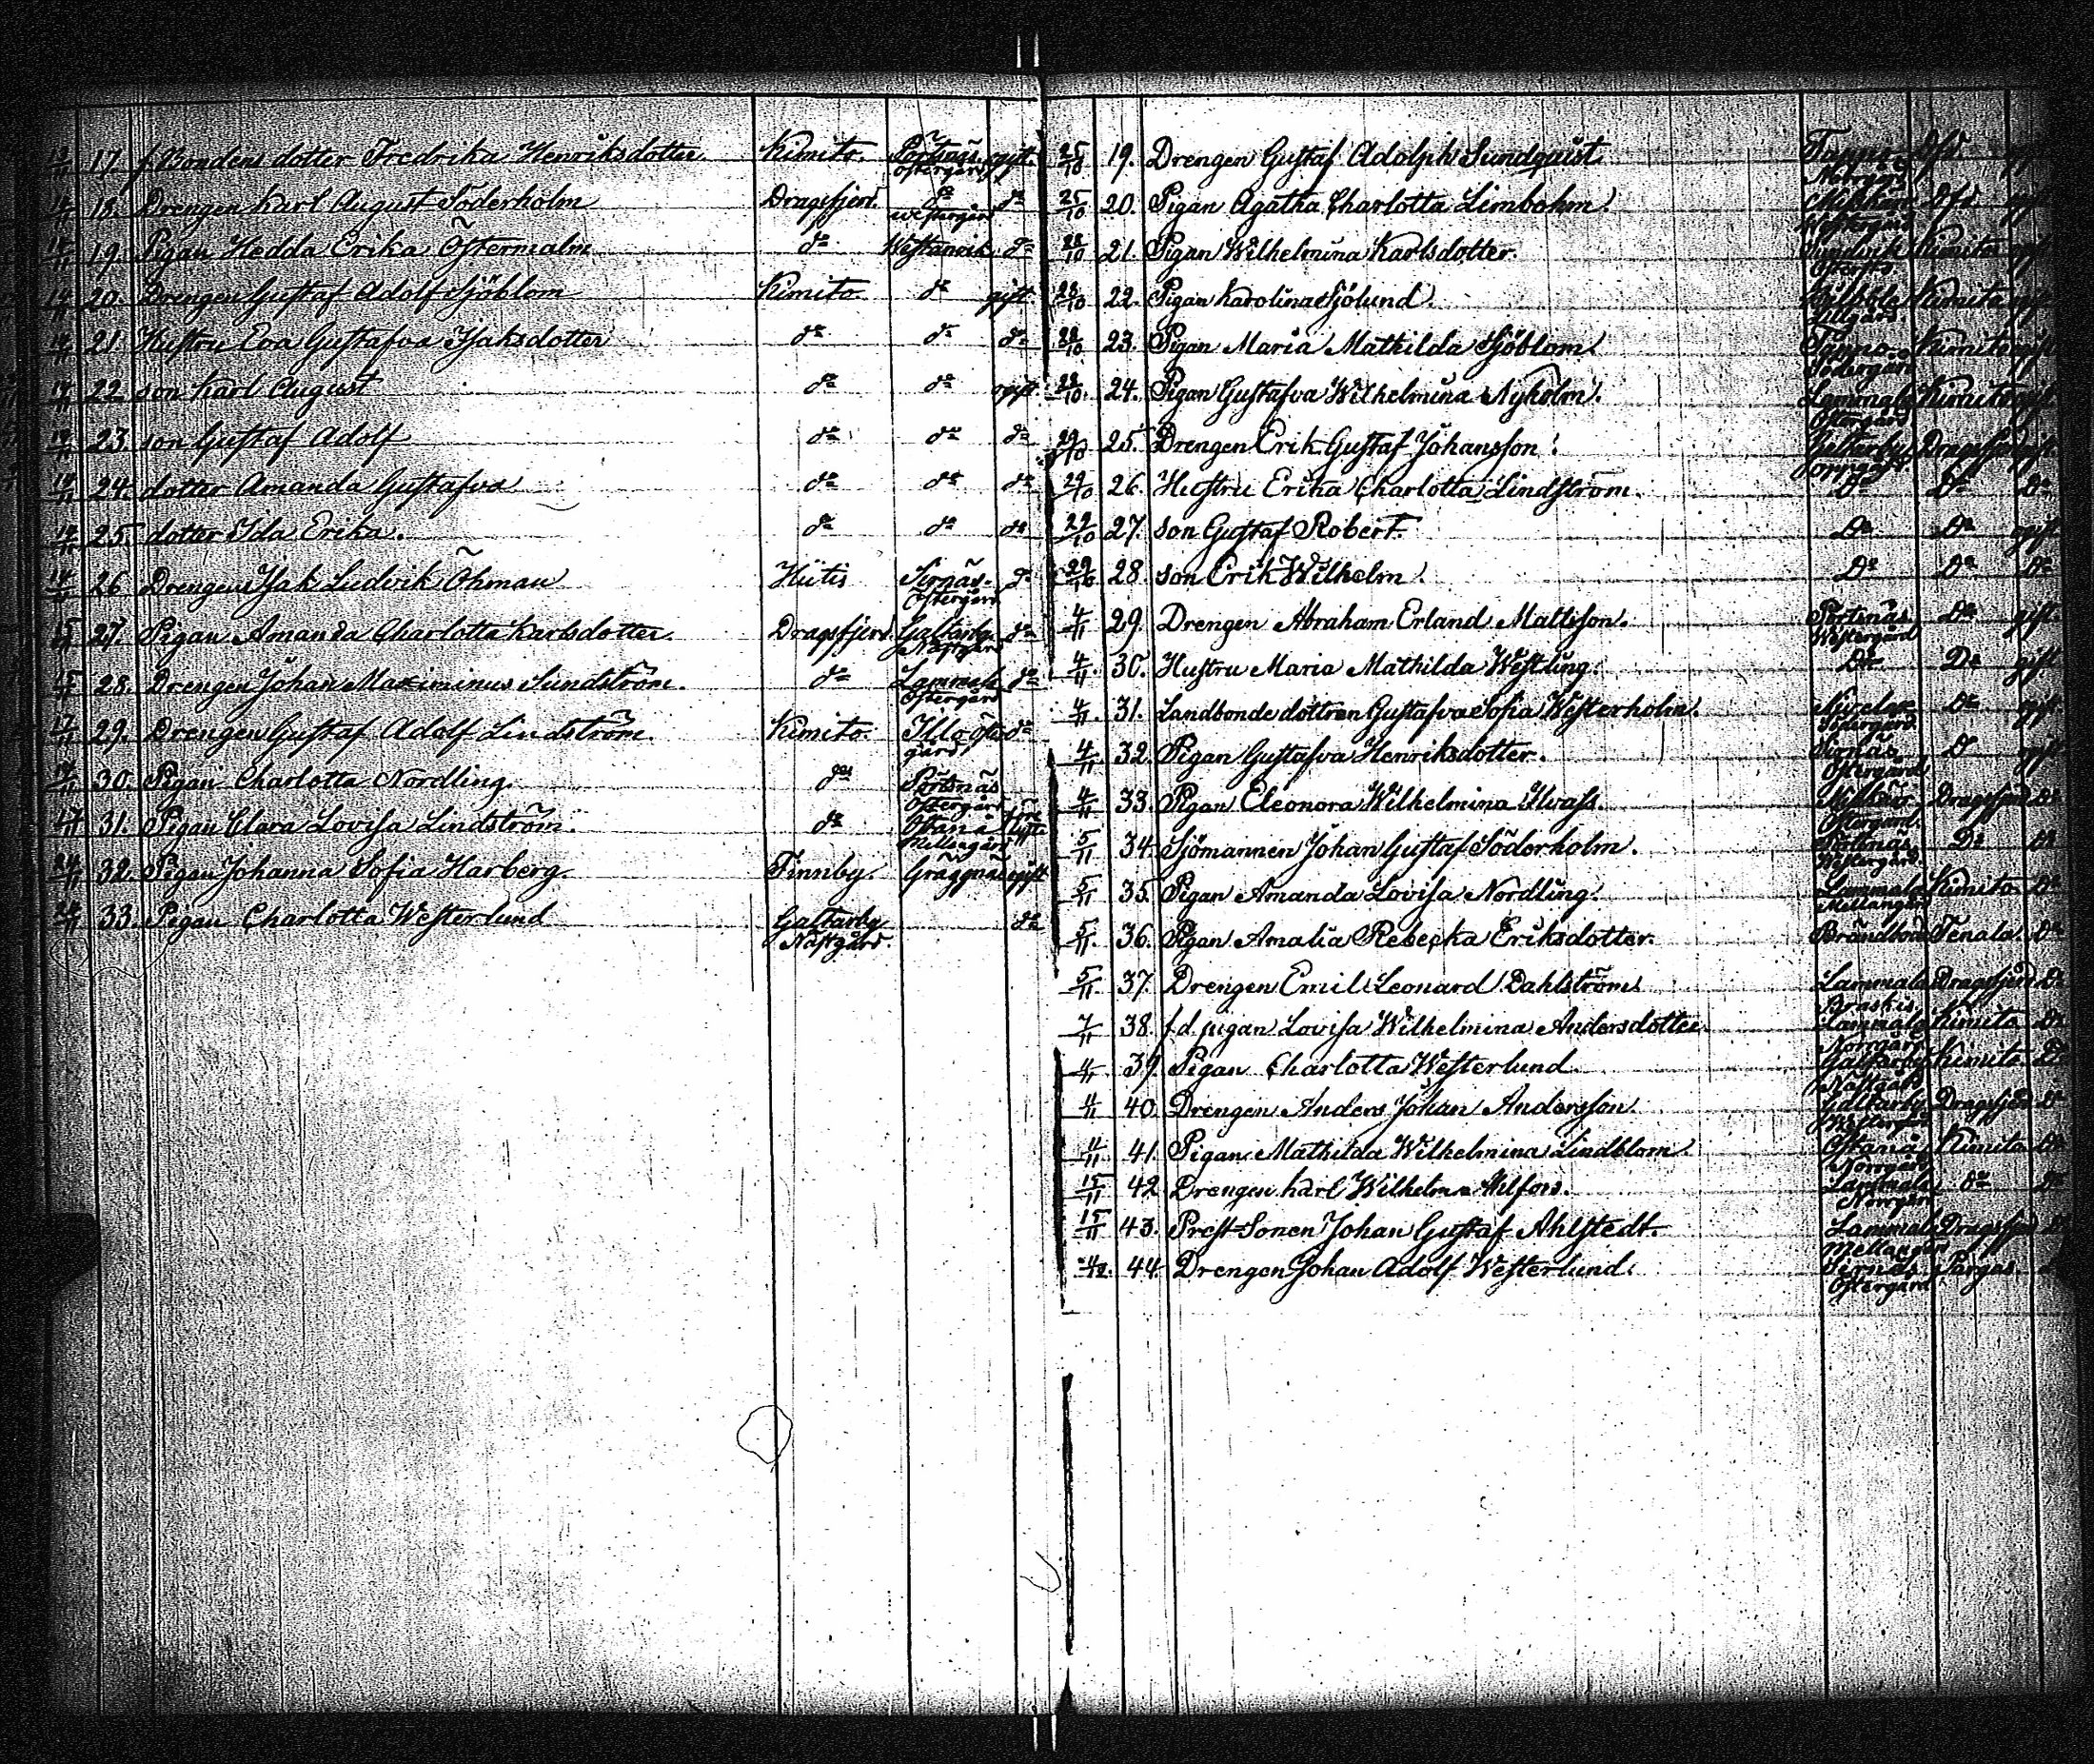 17. f. Bondens dotter Fredrika Henriksdotter Kimito. Pörtsnäs ogift
Östergård
18. Drengen Karl August Söderholm Dragsfjerd. do do
Westergård
19. Pigan Hedda Erika Östermalm do Westanvik do
14/11 20. Drengen Gustaf Adolf Sjöblom Kimito do gift
14/11 21. Hustru Eva Gustafva Isaksdotter do do do
14/11 22 son Karl August do do ogift
14/11 23. son Gustaf Adolf do do do
14/11 24. dotter Amanda Gustafva do do do
14/11 25. dotter Ida Erika. do do do
14/11 26 Drengen Isak Ludvik Öhman Hitis Sirnäs do
Östergård
15/11 27. Pigan Amanda Charlotta Karlsdotter. Dragsfjerd. Galtarby do
Näsgård
15/11 28. Drengen Johan Maximinus Sundström. do Lammala do
Östergård
17/11 29. Drengen Gustaf Adolf Lindström. Kimito Illo Öster do
gård
30. Pigan Charlotta Nordling. do Pörtsnäs
Östergård
31. Pigan Clara Lovisa Lindström. do
Mellangård
24/11 32. Pigan Johanna Sofia Harberg. Finnby. Gräggnäs ogift
33. Pigan Charlotta Westerlund Galtarby do
Näsgård
25/10 19. Drengen Gustaf Adolph Sundquist.
25/10 20. Pigan Agatha Charlotta Limbohm.
Westergård
28/10 21. Pigan Wilhelmina Karlsdotter. Kimito
28/10 22. Pigan Karolina Sjölund. Kimito
Lillgård
28/10 23. Pigan Maria Mathilda Sjöblom. Kimito
Södergård
28/10 24. Pigan Gustafva Wilhelmina Nyholm. Lammala Kimito
Östergård
29/10 25. Drengen Erik Gustaf Johansson. Dragsfjerd gift
Norrgård
29/10 26. Hustru Erika Charlotta Lindström. Do Do Do
29/10 27. son Gustaf Robert. Do Do ogift
29/10 28. son Erik Wilhelm. Do Do Do
4/11 29. Drengen Abraham Erland Mattsson. Pörtsnäs Do gift.
Westergård
4/11 30. Hustru Maria Mathilda Westling. Do Do gift
4/11 31. Landbonde dottren Gustafva Sofia Westerholm. Do ogift
Södergård
4/11 32. Pigan Gustafva Henriksdotter. Sirnäs D ogift
Östergård
4/11 33. Pigan Eleonora Wilhelmina Hvass. Dragsfjerd Do
Östergård.
5/11 34. Sjömannen Johan Gustaf Söderholm. Pörtsnäs Do Do
Westergård.
5/11 35. Pigan Amanda Lovisa Nordling. Lammala Kimito Do
Mellangård
5/11 36. Pigan Amalia Rebecka Eriksdotter. Tenala Do
5/11 37. Drengen Emil Leonard Dahlström. Lammala Dragsfjerd Do
7/11 38. f.d. pigan Lovisa Wilhelmina Andersdotter Lammala Kimito Do
Norrgård
39. Pigan Charlotta Westerlund Galtarby Kimito Do
Näsgård
11/11 40. Drengen Anders Johan Andersson. Galtarby Dragsfjerd Do
11/11 41. Pigan Mathilda Wilhelmina Lindblom. Kimito Do
Norrgård
15/11 42. Drengen Karl Wilhelm Ahlfors. Lammala do Do
Norrgård
15/11 43. Prest-Sonen Johan Gustaf Ahlstedt. Lammala Dragsfjerd Do
Mellangård
44. Drengen Johan Adolf Westerlund. Sirnäs Pargas.
Östergård